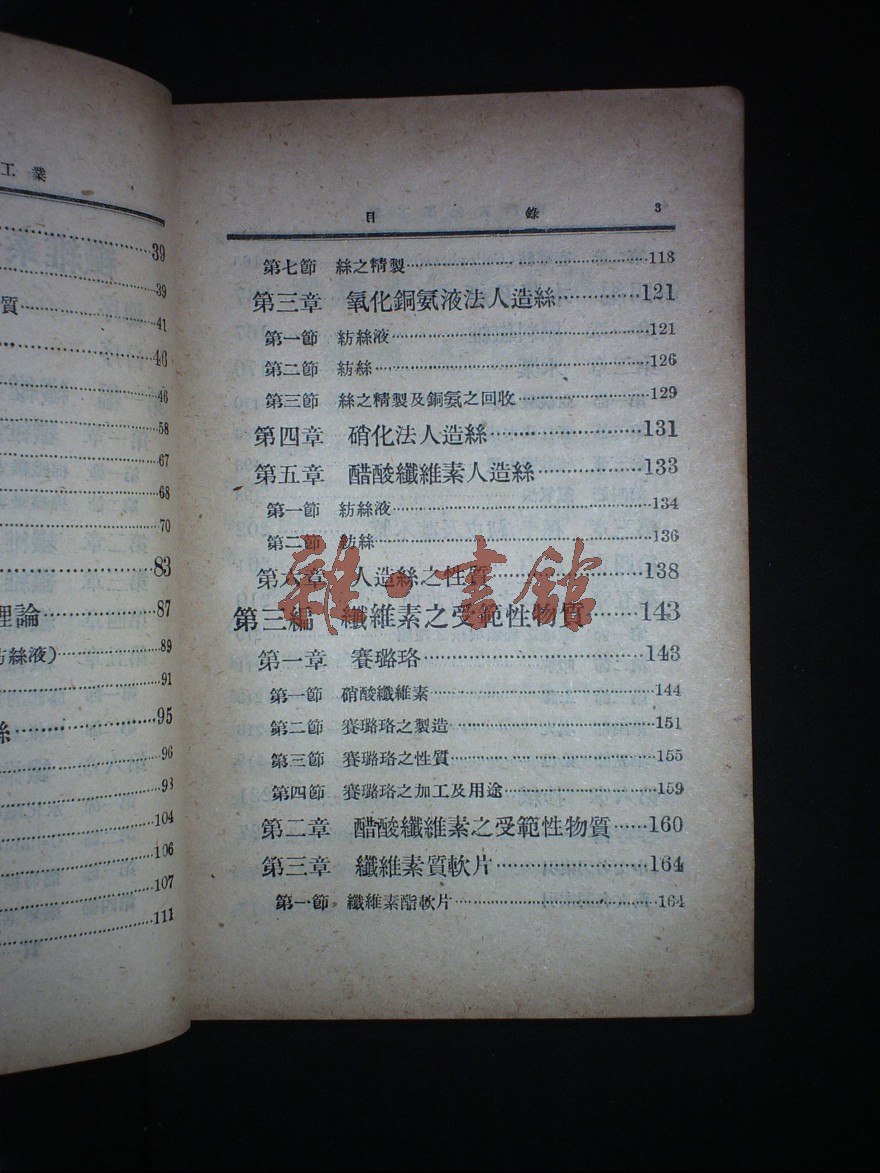 工業
39
39
質 41
46
46
58
67
68
70
83
理論 87
紡絲液) 89
91
絲 95
96
93
104
106
107
111
目 錄 3
第七節 絲之精製 118
第三章 氧化銅氨液法人造絲 121
第一節 紡絲液 121
第二節 紡絲 126
第三節 絲之精製及銅氨之回收 129
第四章 硝化法人造絲 131
第五章 醋酸纖維素人造絲 133
第一節 紡絲液 134
第二節 紡絲 136
第六章 人造絲之性質 138
第三編 纖維素之受範性物質 143
第一章 賽璐珞 143
第一節 硝酸纖維素 144
第二節 賽璐珞之製造 151
第三節 賽璐珞之性質 155
第四節 賽璐珞之加工及用途 159
第二章 醋酸纖維素之受範性物質 160
第三章 纖維素質軟片 164
第一節 纖維素酯軟片 164
雜·書館